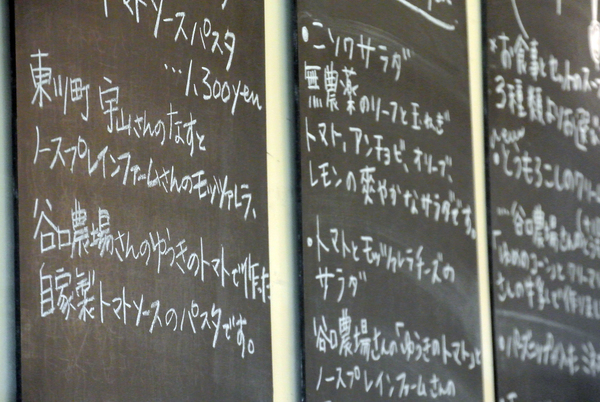 トマトソースパスタ
…1,300yen
東川町 宇山さんのなすと
ノースプレインファームさんのモッツァレラ、
谷口農場さんのゆうきのトマトで作った
自家製トマトソースのパスタです。
・ニソワサラダ
無農薬のリーフと玉ねぎ
トマト、アンチョビ、オリーブ、
レモンの爽やかなサラダです。
・トマトとモッツァレラチーズの
サラダ
谷口農場さんの「ゆうきのトマト」と
ノースプレインファームさんの
*お食事とセットのスープ
3種類よりお選び
new
・とうもろこしのクリー
谷口農場さん
さんの牛乳で作りまし